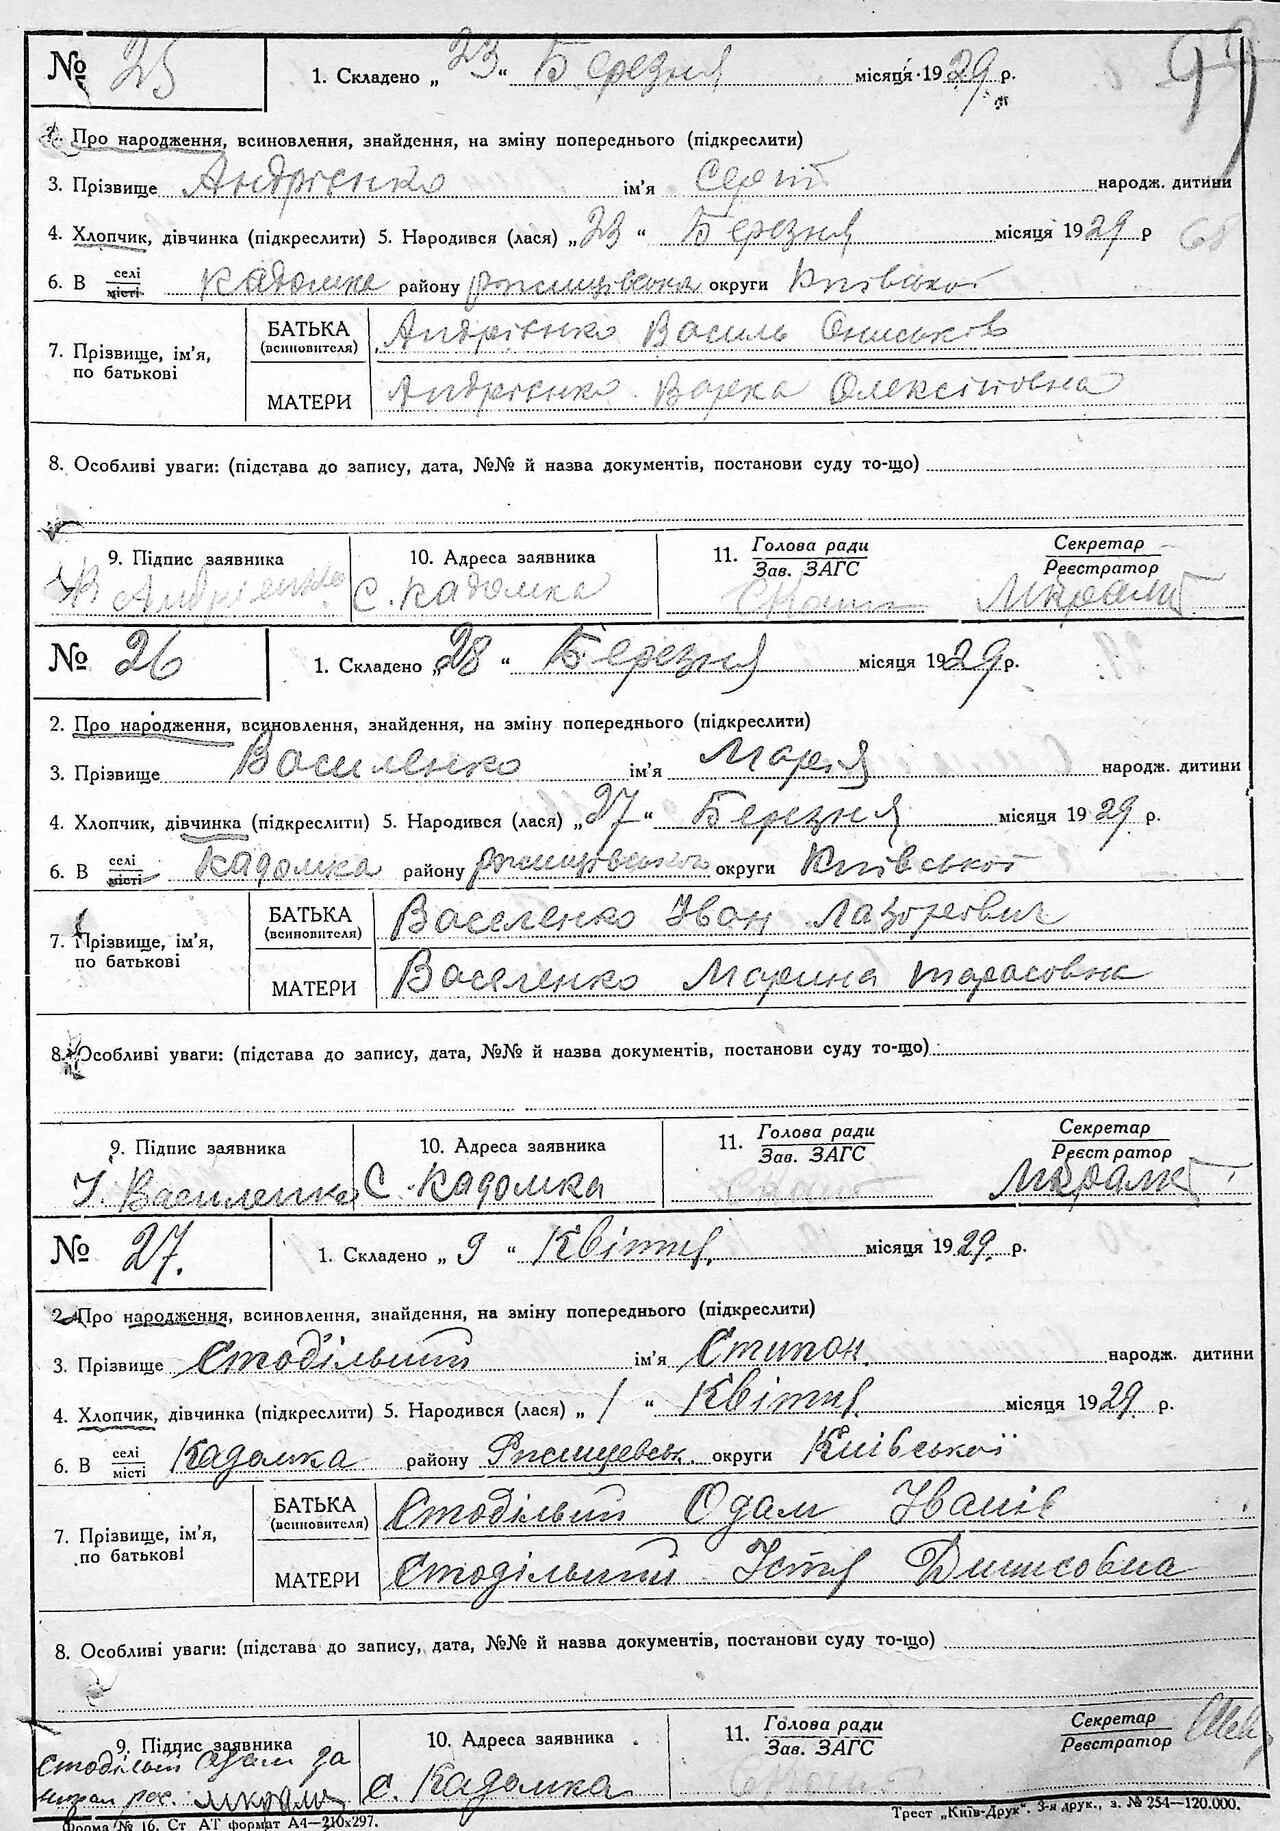 № 25 1. Складено „ 23 “ Березня місяця 1929 р. 99
2. Про народження, всиновлення, знайдення, на зміну попереднього (підкреслити)
3. Прізвище Андрієнко ім’я Сергій народж. дитини
4. Хлопчик, дівчинка (підкреслити) 5. Народився (лася) „ 23 “ Березня місяця 1929 р 68
6. В селі/місті Кадомка району Ржищівська округи Київської
7. Прізвище, ім’я, по батькові
БАТЬКА (всиновителя) Андрієнко Василь Ониськов
МАТЕРИ Андрієнко Варка Олексіївна
8. Особливі уваги: (підстава до запису, дата, №№ й назва документів, постанови суду то-що)
9. Підпис заявника 10. Адреса заявника 11. Голова ради/Зав. ЗАГС Секретар/Реєстратор
В Андрієнко С. Кадомка
№ 26 1. Складено „ 28 “ Березня місяця 1929 р.
2. Про народження, всиновлення, знайдення, на зміну попереднього (підкреслити)
3. Прізвище Василенко ім’я Марія народж. дитини
4. Хлопчик, дівчинка (підкреслити) 5. Народився (лася) „ 27 “ Березня місяця 1929 р.
6. В селі/місті Кадомка району Ржищівської округи Київської
7. Прізвище, ім’я, по батькові
БАТЬКА (всиновителя) Васеленко Іван Лазоревич
МАТЕРИ Васеленко Марина Тарасовна
8. Особливі уваги: (підстава до запису, дата, №№ й назва документів, постанови суду то-що)
9. Підпис заявника 10. Адреса заявника 11. Голова ради/Зав. ЗАГС Секретар/Реєстратор
І. Василенко С. Кадомка
№ 27. 1. Складено „ 9 “ Квітня. місяця 1929. р.
2. Про народження, всиновлення, знайдення, на зміну попереднього (підкреслити)
3. Прізвище Стодільний ім’я Стипан. народж. дитини
4. Хлопчик, дівчинка (підкреслити) 5. Народився (лася) „ 1 “ Квітня. місяця 1929. р.
6. В селі/місті Кадомка району Ржищевськ. округи Київської
7. Прізвище, ім’я, по батькові
БАТЬКА (всиновителя) Стодільний Одам Іванів
МАТЕРИ Стодільний Устя Динисовна
8. Особливі уваги: (підстава до запису, дата, №№ й назва документів, постанови суду то-що)
9. Підпис заявника 10. Адреса заявника 11. Голова ради/Зав. ЗАГС Секретар/Реєстратор
Стодільний Одам за
с. Кадомка
Форма № 16. Ст АТ формат А4—210x297. Трест „Київ-Друк“. 3-я друк., з. № 254—120.000.